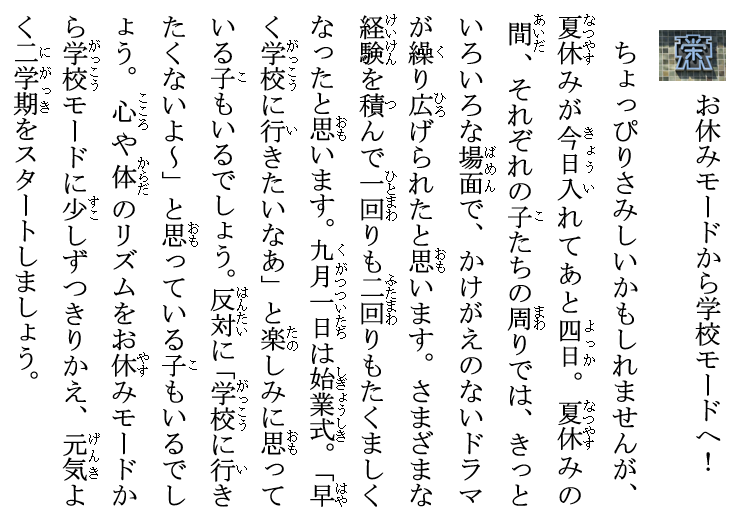 お休みモードから学校モードへ！
ちょっぴりさみしいかもしれませんが、
夏休みが今日入れてあと四日。夏休みの
間、それぞれの子たちの周りでは、きっと
いろいろな場面で、かけがえのないドラマ
が繰り広げられたと思います。さまざまな
経験を積んで一回りも二回りもたくましく
なったと思います。九月一日は始業式。「早
く学校に行きたいなあ」と楽しみに思って
いる子もいるでしょう。反対に「学校に行き
たくないよ～」と思っている子もいるでし
ょう。心や体のリズムをお休みモードか
ら学校モードに少しずつきりかえ、元気よ
く二学期をスタートしましょう。